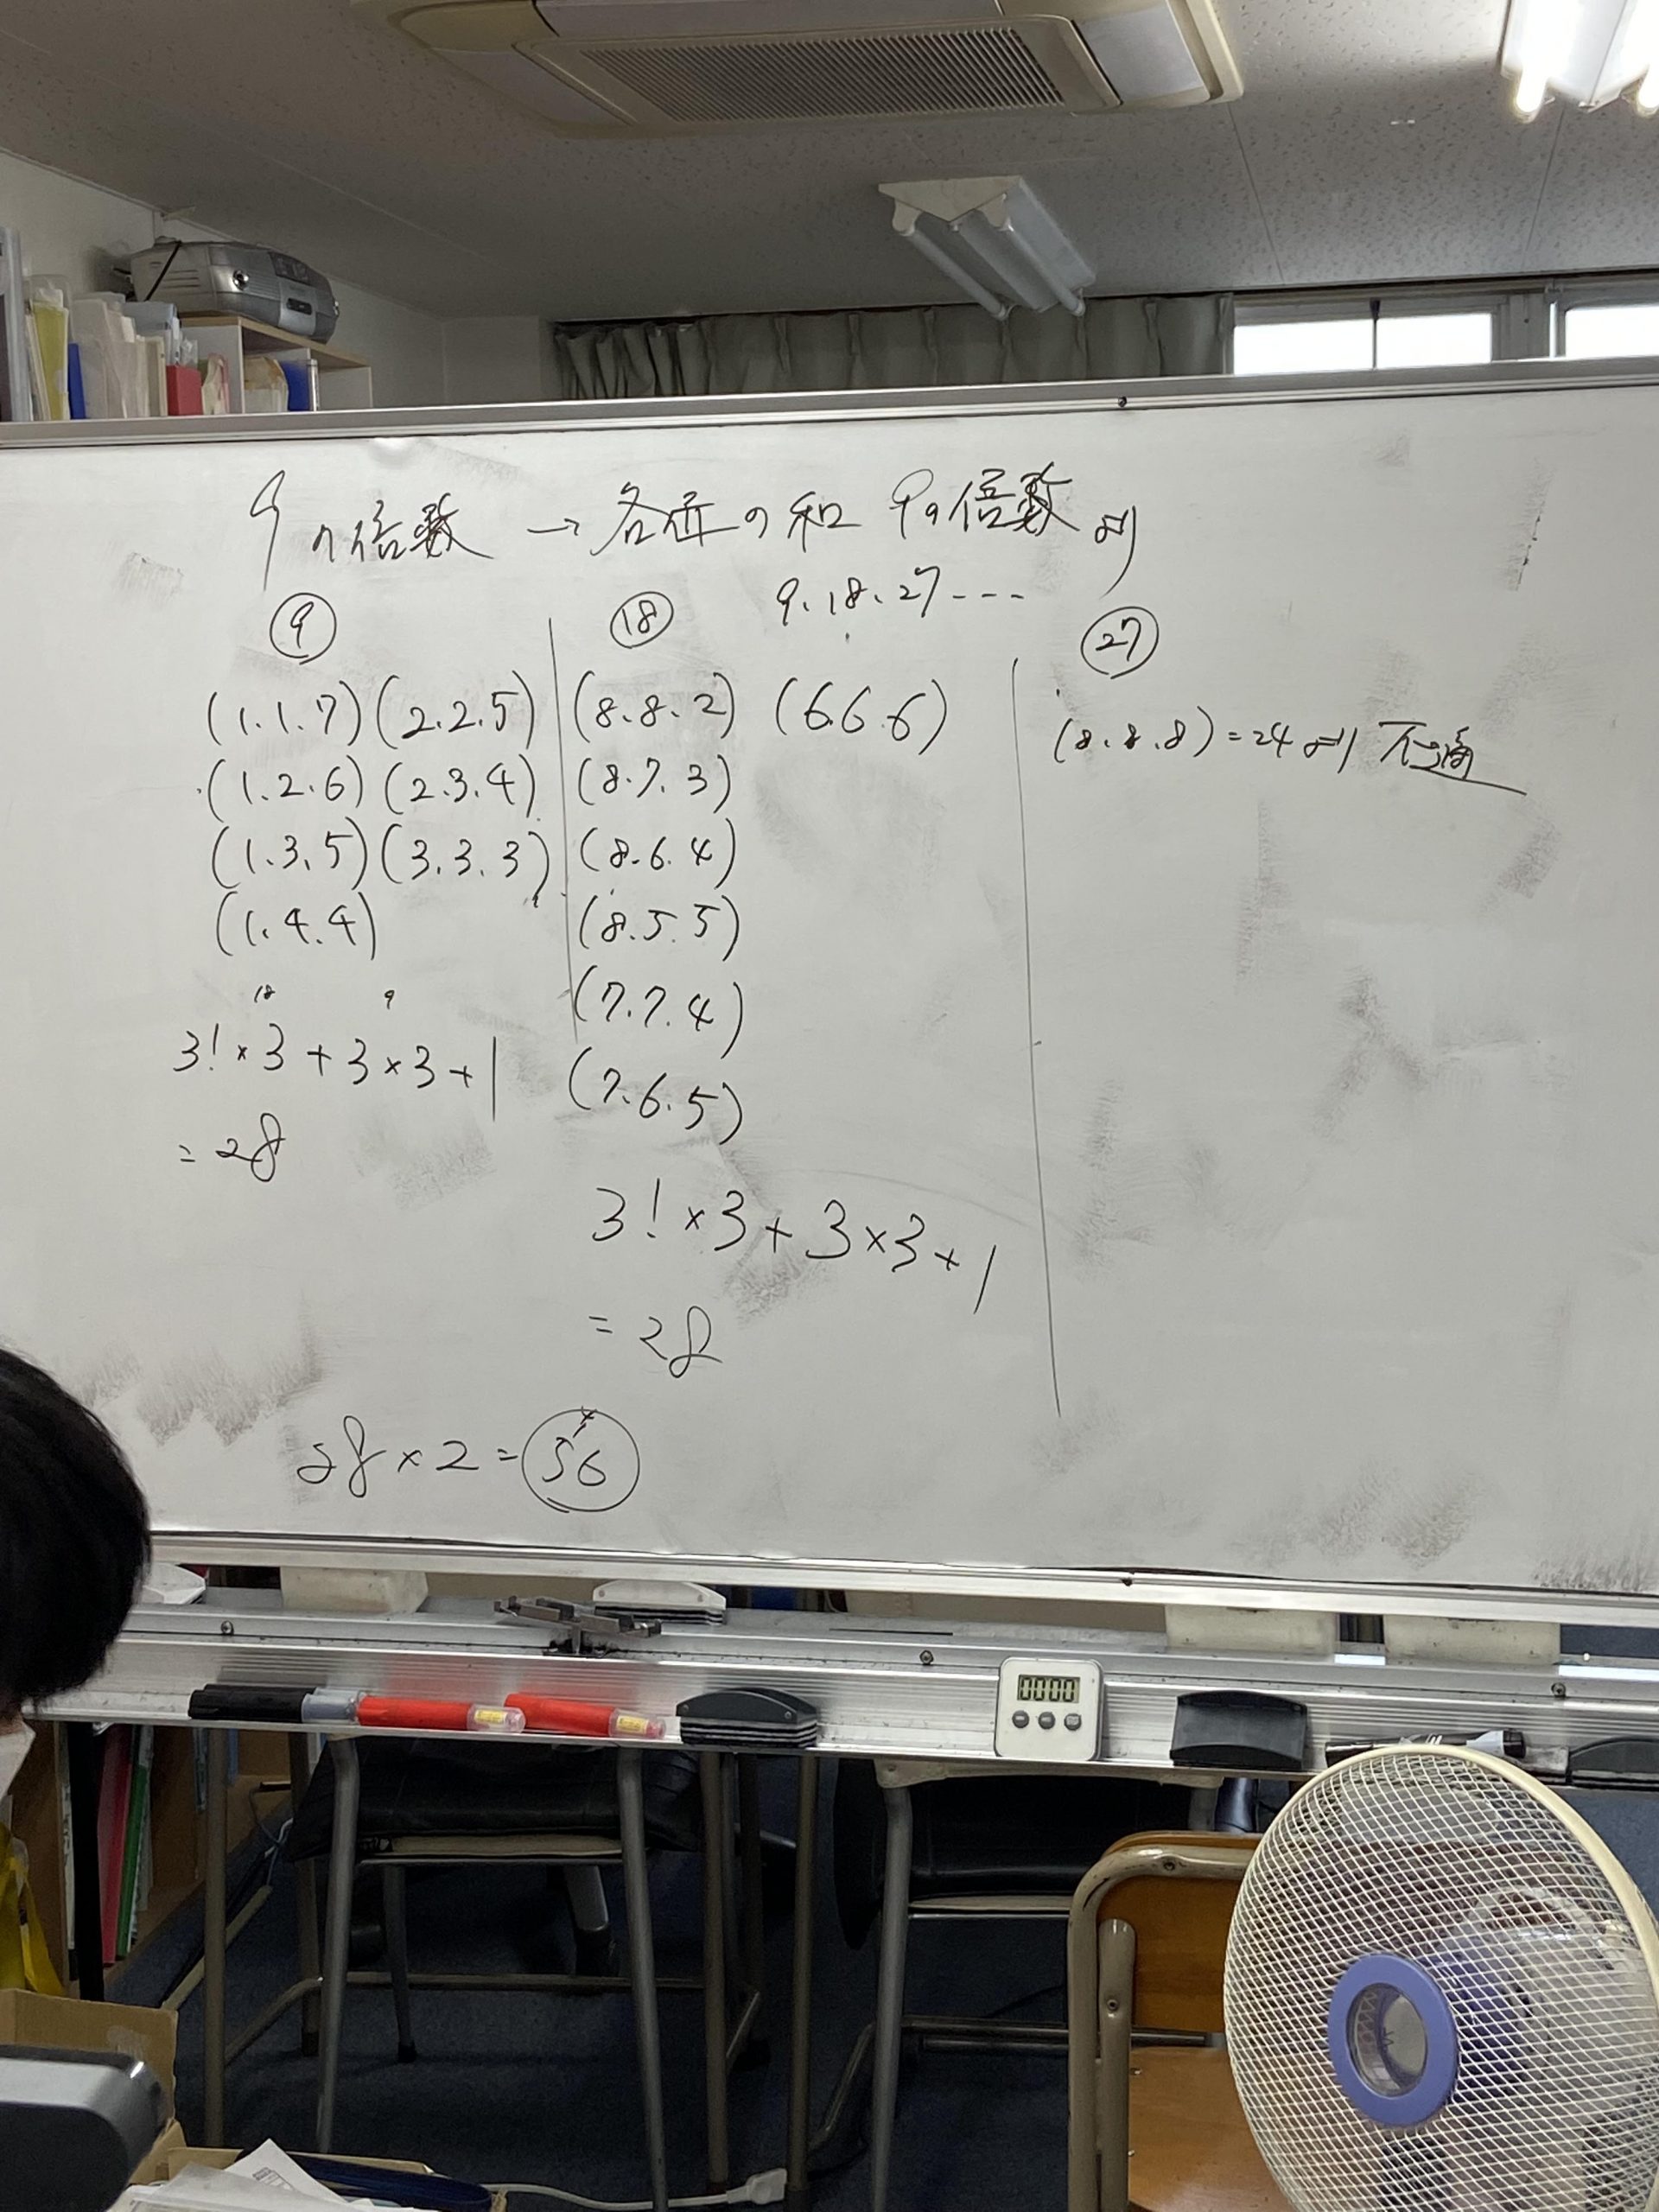 9の倍数 → 各位の和 9の倍数より
9、18、27---
⑨
(1.1.7)(2.2.5)
(1.2.6)(2.3.4)
(1.3.5)(3.3.3)
(1.4.4)
18 9
3!×3+3×3+1
=28
⑱
(8.8.2) (6.6.6)
(8.7.3)
(8.6.4)
(8.5.5)
(7.7.4)
(7.6.5)
3!×3+3×3+1
=28
㉗
(8.8.8)=24より 不適
28×2=56
00:00